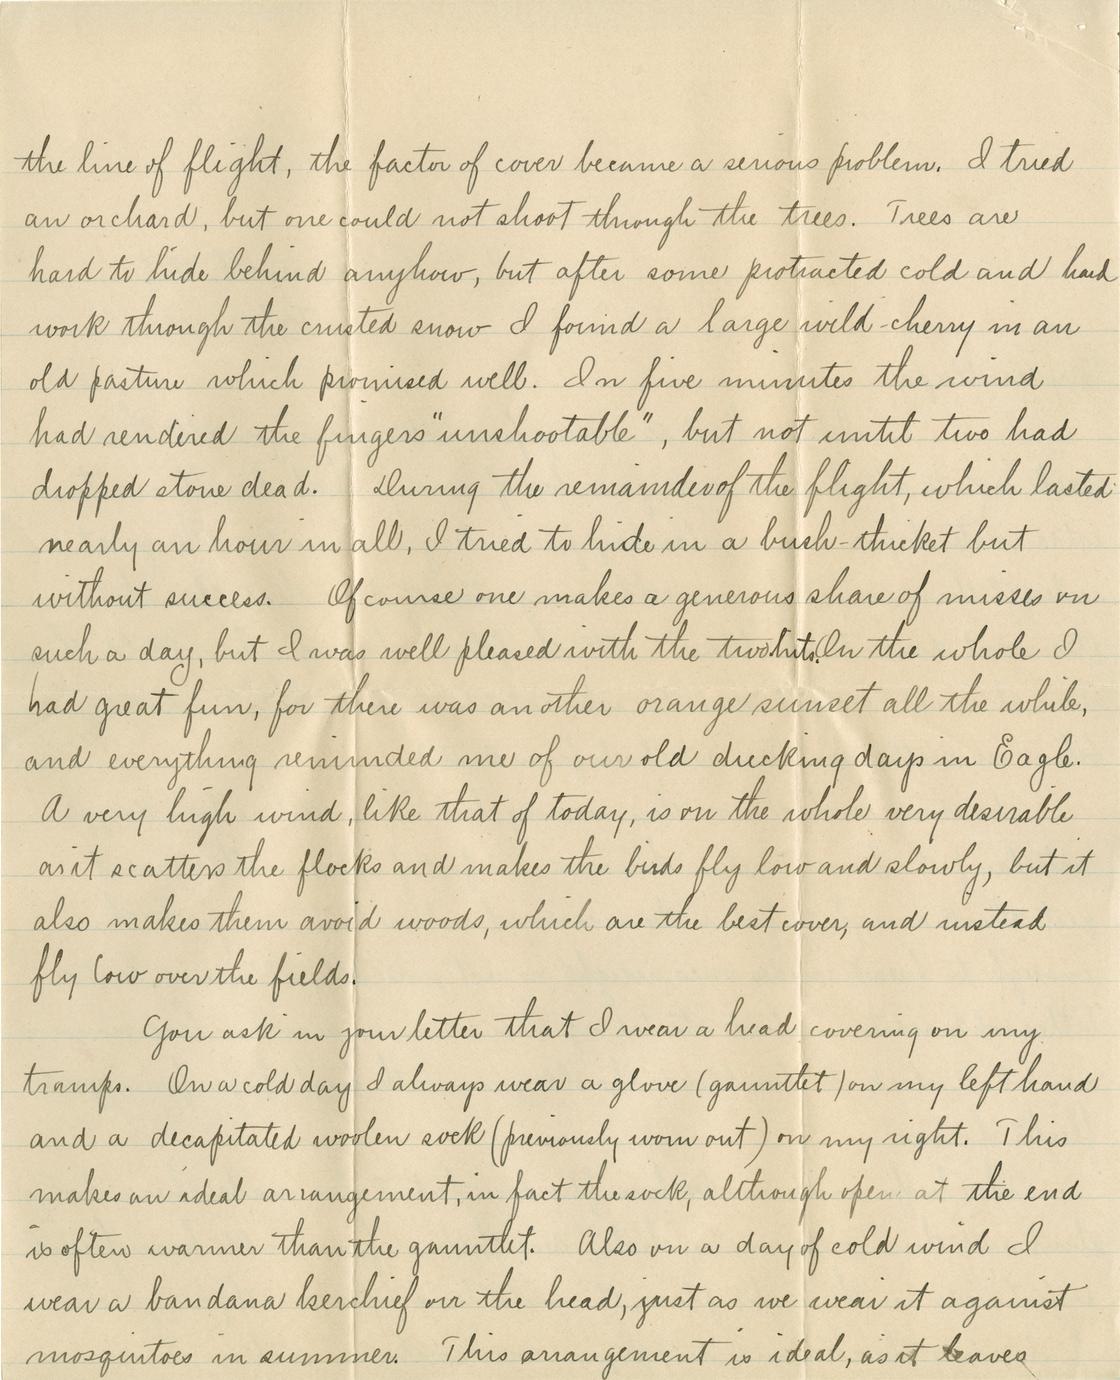 the line of flight, the factor of cover became a serious problem. I tried
an orchard, but one could not shoot through the trees. Trees are
hard to hide behind anyhow, but after some protracted cold and hard
work through the crusted snow I found a large wild-cherry in an
old pasture which promised well. In five minutes the wind
had rendered the fingers "unshootable", but not until two had
dropped stone dead. During the remainder of the flight, which lasted
nearly an hour in all, I tried to hide in a bush-thicket but
without success. Of course one makes a generous share of misses on
such a day, but I was well pleased with the two hits. On the whole I
had great fun, for there was another orange sunset all the while,
and everything reminded me of our old ducking days in Eagle.
A very high wind, like that of today, is on the whole very desirable
as it scatters the flocks and makes the birds fly low and slowly, but it
also makes them avoid woods, which are the best cover, and instead
fly low over the fields.
You ask in your letter that I wear a head covering on my
tramps. On a cold day I always wear a glove (gauntlet) on my left hand
and a decapitated woolen sock (previously worn out) on my right. This
makes an ideal arrangement, in fact the sock, although open at the end
is often warmer than the gauntlet. Also on a day of cold wind I
wear a bandana kerchief on the head, just as we wear it against
mosquitoes in summer. This arrangement is ideal, as it leaves